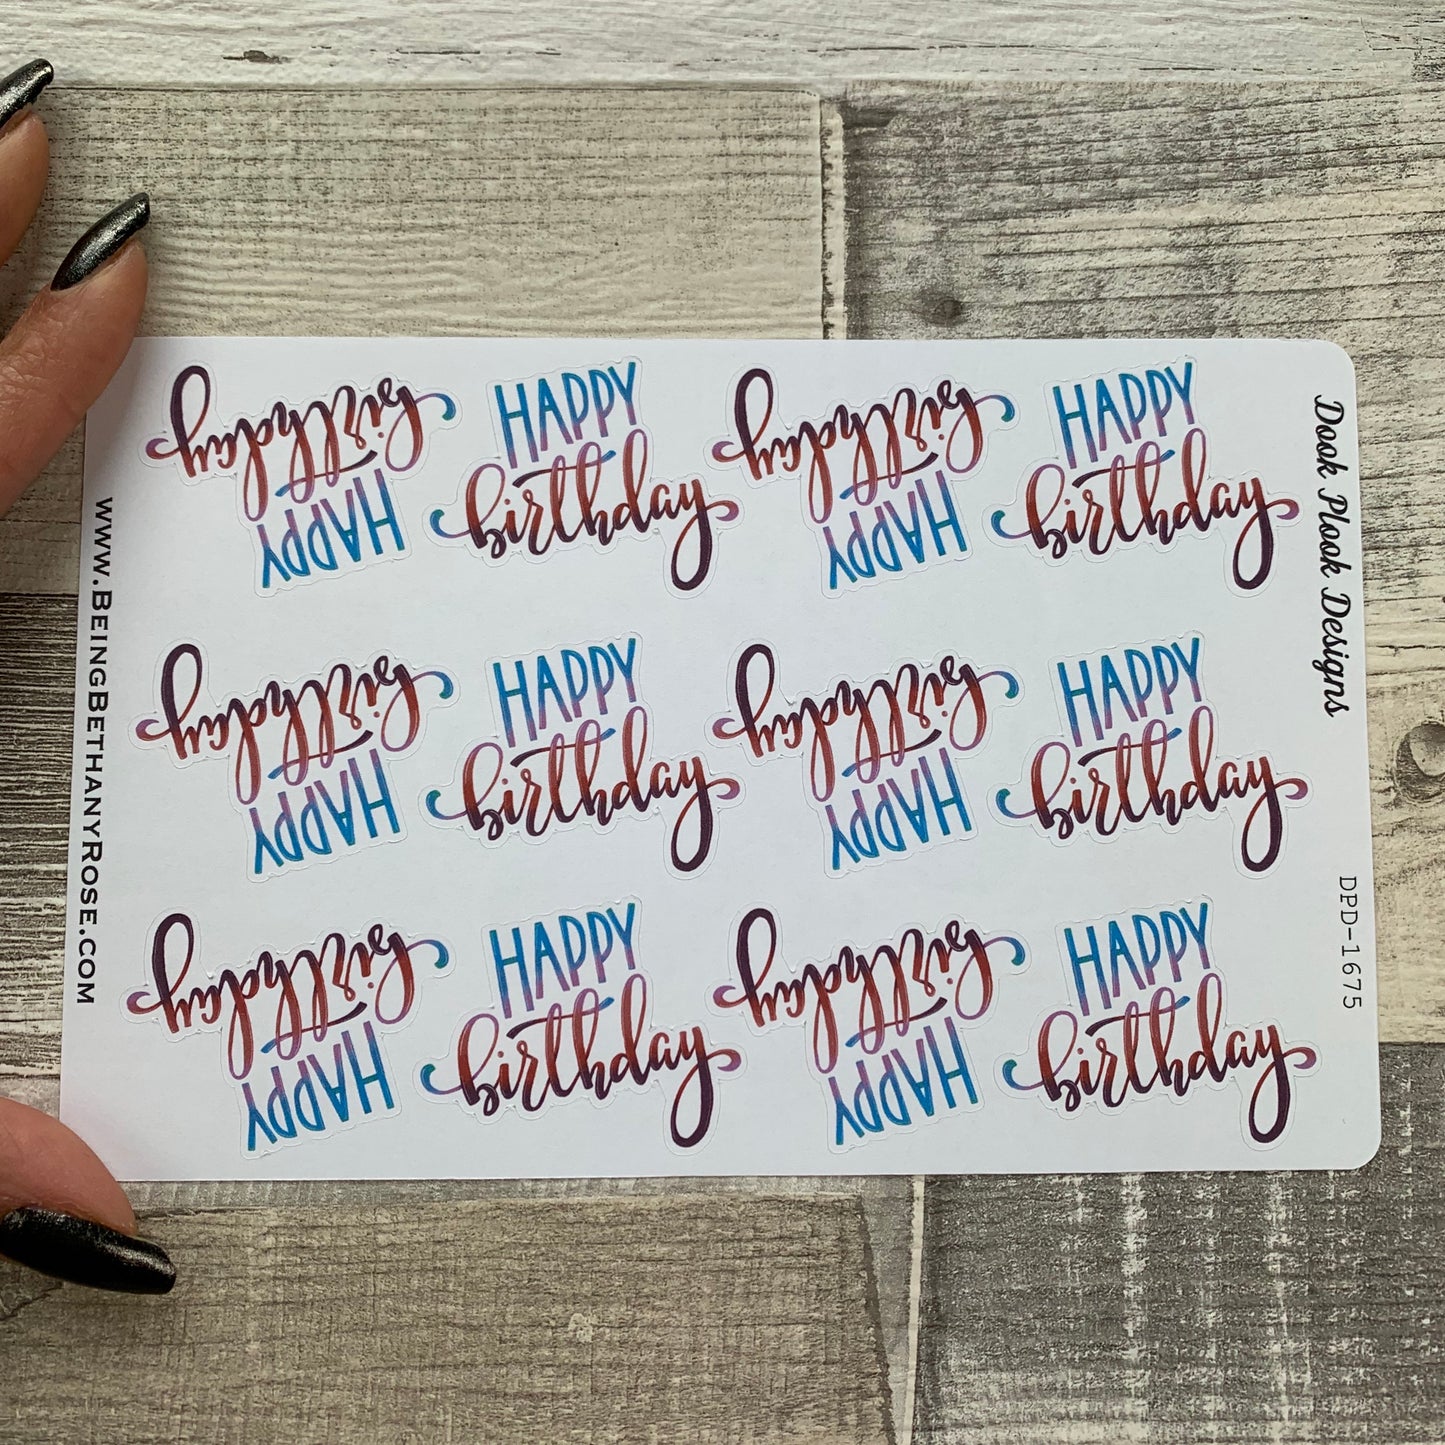 HAPPY
birthday
HAPPY
birthday
HAPPY
birthday
HAPPY
birthday
HAPPY
birthday
HAPPY
birthday
HAPPY
birthday
HAPPY
birthday
HAPPY
birthday
HAPPY
birthday
HAPPY
birthday
HAPPY
birthday
www.BeingBethanyRose.com
Dook Plook Designs
DPD-1675